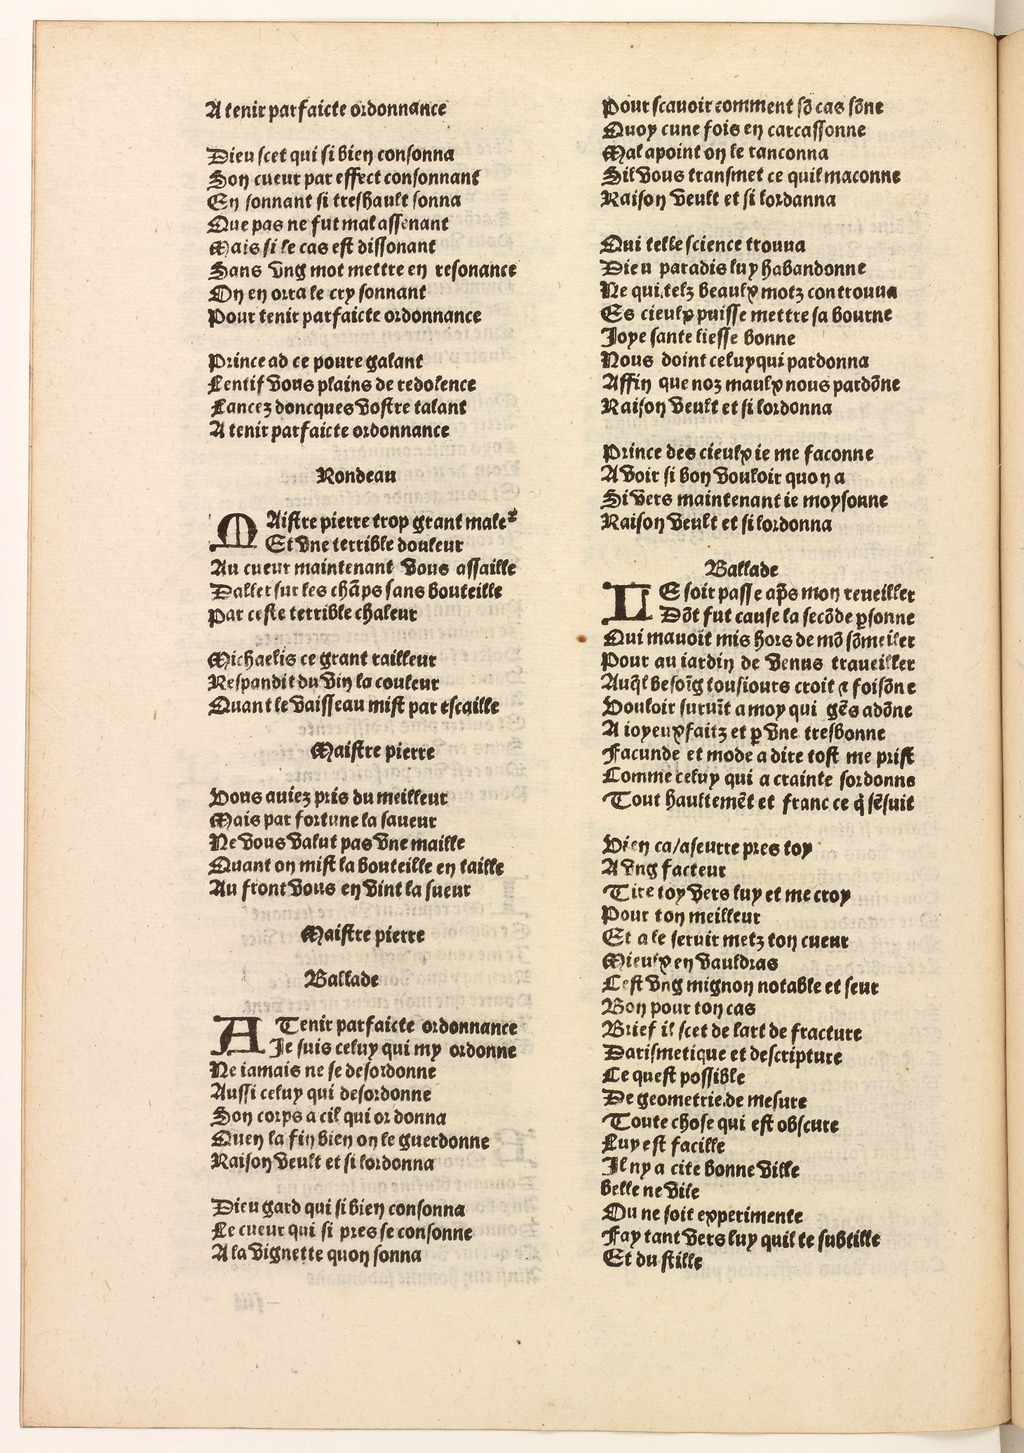 A tenir parfaicte ordonnance
Dieu scet qui si bien consonna
Son cueur par effect consonnant
En sonnant si treshault sonna
Que pas ne fut mal assenant
Mais si le cas est dissonant
Sans vng mot mettre en resonance
On en orra le cry sonnant
Pour tenir parfaicte ordonnance
Prince ad ce poure galant
Lentif vous plains de redolence
Lancez doncques vostre talant
A tenir parfaicte ordonnance
Rondeau
MAistre pierre trop grant male
Et vne terrible douleur
Au cueur maintenant vous assaille
Daller sur les chãps sans bouteille
Par ceste terrible chaleur
Michaelis ce grant railleur
Respandit du vin la couleur
Quant le vaisseau mist par escaille
Maistre pierre
Vous auiez pris du meilleur
Mais par fortune la saueur
Ne vous valut pas vne maille
Quant on mist la bouteille en taille
Au front vous en vint la sueur
Maistre pierre
Ballade
A Tenir parfaicte ordonnance
Je suis celuy qui my ordonne
Ne iamais ne se desordonne
Aussi celuy qui desordonne
Son corps a cil qui or donna
Quen la fin bien on le guerdonne
Raison veult et si lordonna
Dieu gard qui si bien consonna
Le cueur qui si pres se consonne
A la vignette quon sonna
Pour scauoir comment sõ cas sõne
Quoy cune fois en carcassonne
Mal apoint on le ranconna
Sil vous transmet ce quil maconne
Raison veult et si lordanna
Qui telle science trouua
Dieu paradis luy habandonne
Ne qui telz beaulx motz controuua
Es cieulx puisse mettre sa bourne
Joye sante liesse bonne
Nous doint celuy qui pardonna
Affin que noz maulx nous pardõne
Raison veult et si lordonna
Prince des cieulx ie me faconne
Avoir si bon vouloir quon a
Si vers maintenant ie moysonne
Raison veult et si lordonna
Ballade
LE soir passe ap̃s mon reueiller
Dõt fut cause la secõde ꝑsonne
Qui mauoit mis hors de mõ sõmeiller
Pour au iardin de venus traueiller
Auq̃l besoĩg tousiours croit ⁊ foisõne
Vouloir suruĩt a moy qui gẽs adõne
A ioyeux faitz et ꝑ vne tresbonne
Facunde et mode a dire tost me prist
Comme celuy qui a crainte sordonne
Tout haultemẽt et franc ce q̃ sẽsuit
Vien ca/aseurre pres toy
A vng facteur
Tire toy vers luy et me croy
Pour ton meilleur
Et a le seruir metz ton cueur
Mieulx en vauldras
Cest vng mignon notable et seur
Bon pour ton cas
Brief il scet de lart de fracture
Darismetique et descripture
Ce quest possible
De geometrie.de mesure
Toute chose qui est obscure
Luy est facille
Il ny a cite bonne ville
belle ne vile
Ou ne soit experimente
Fay tant vers luy quil te subtille
Et du stille